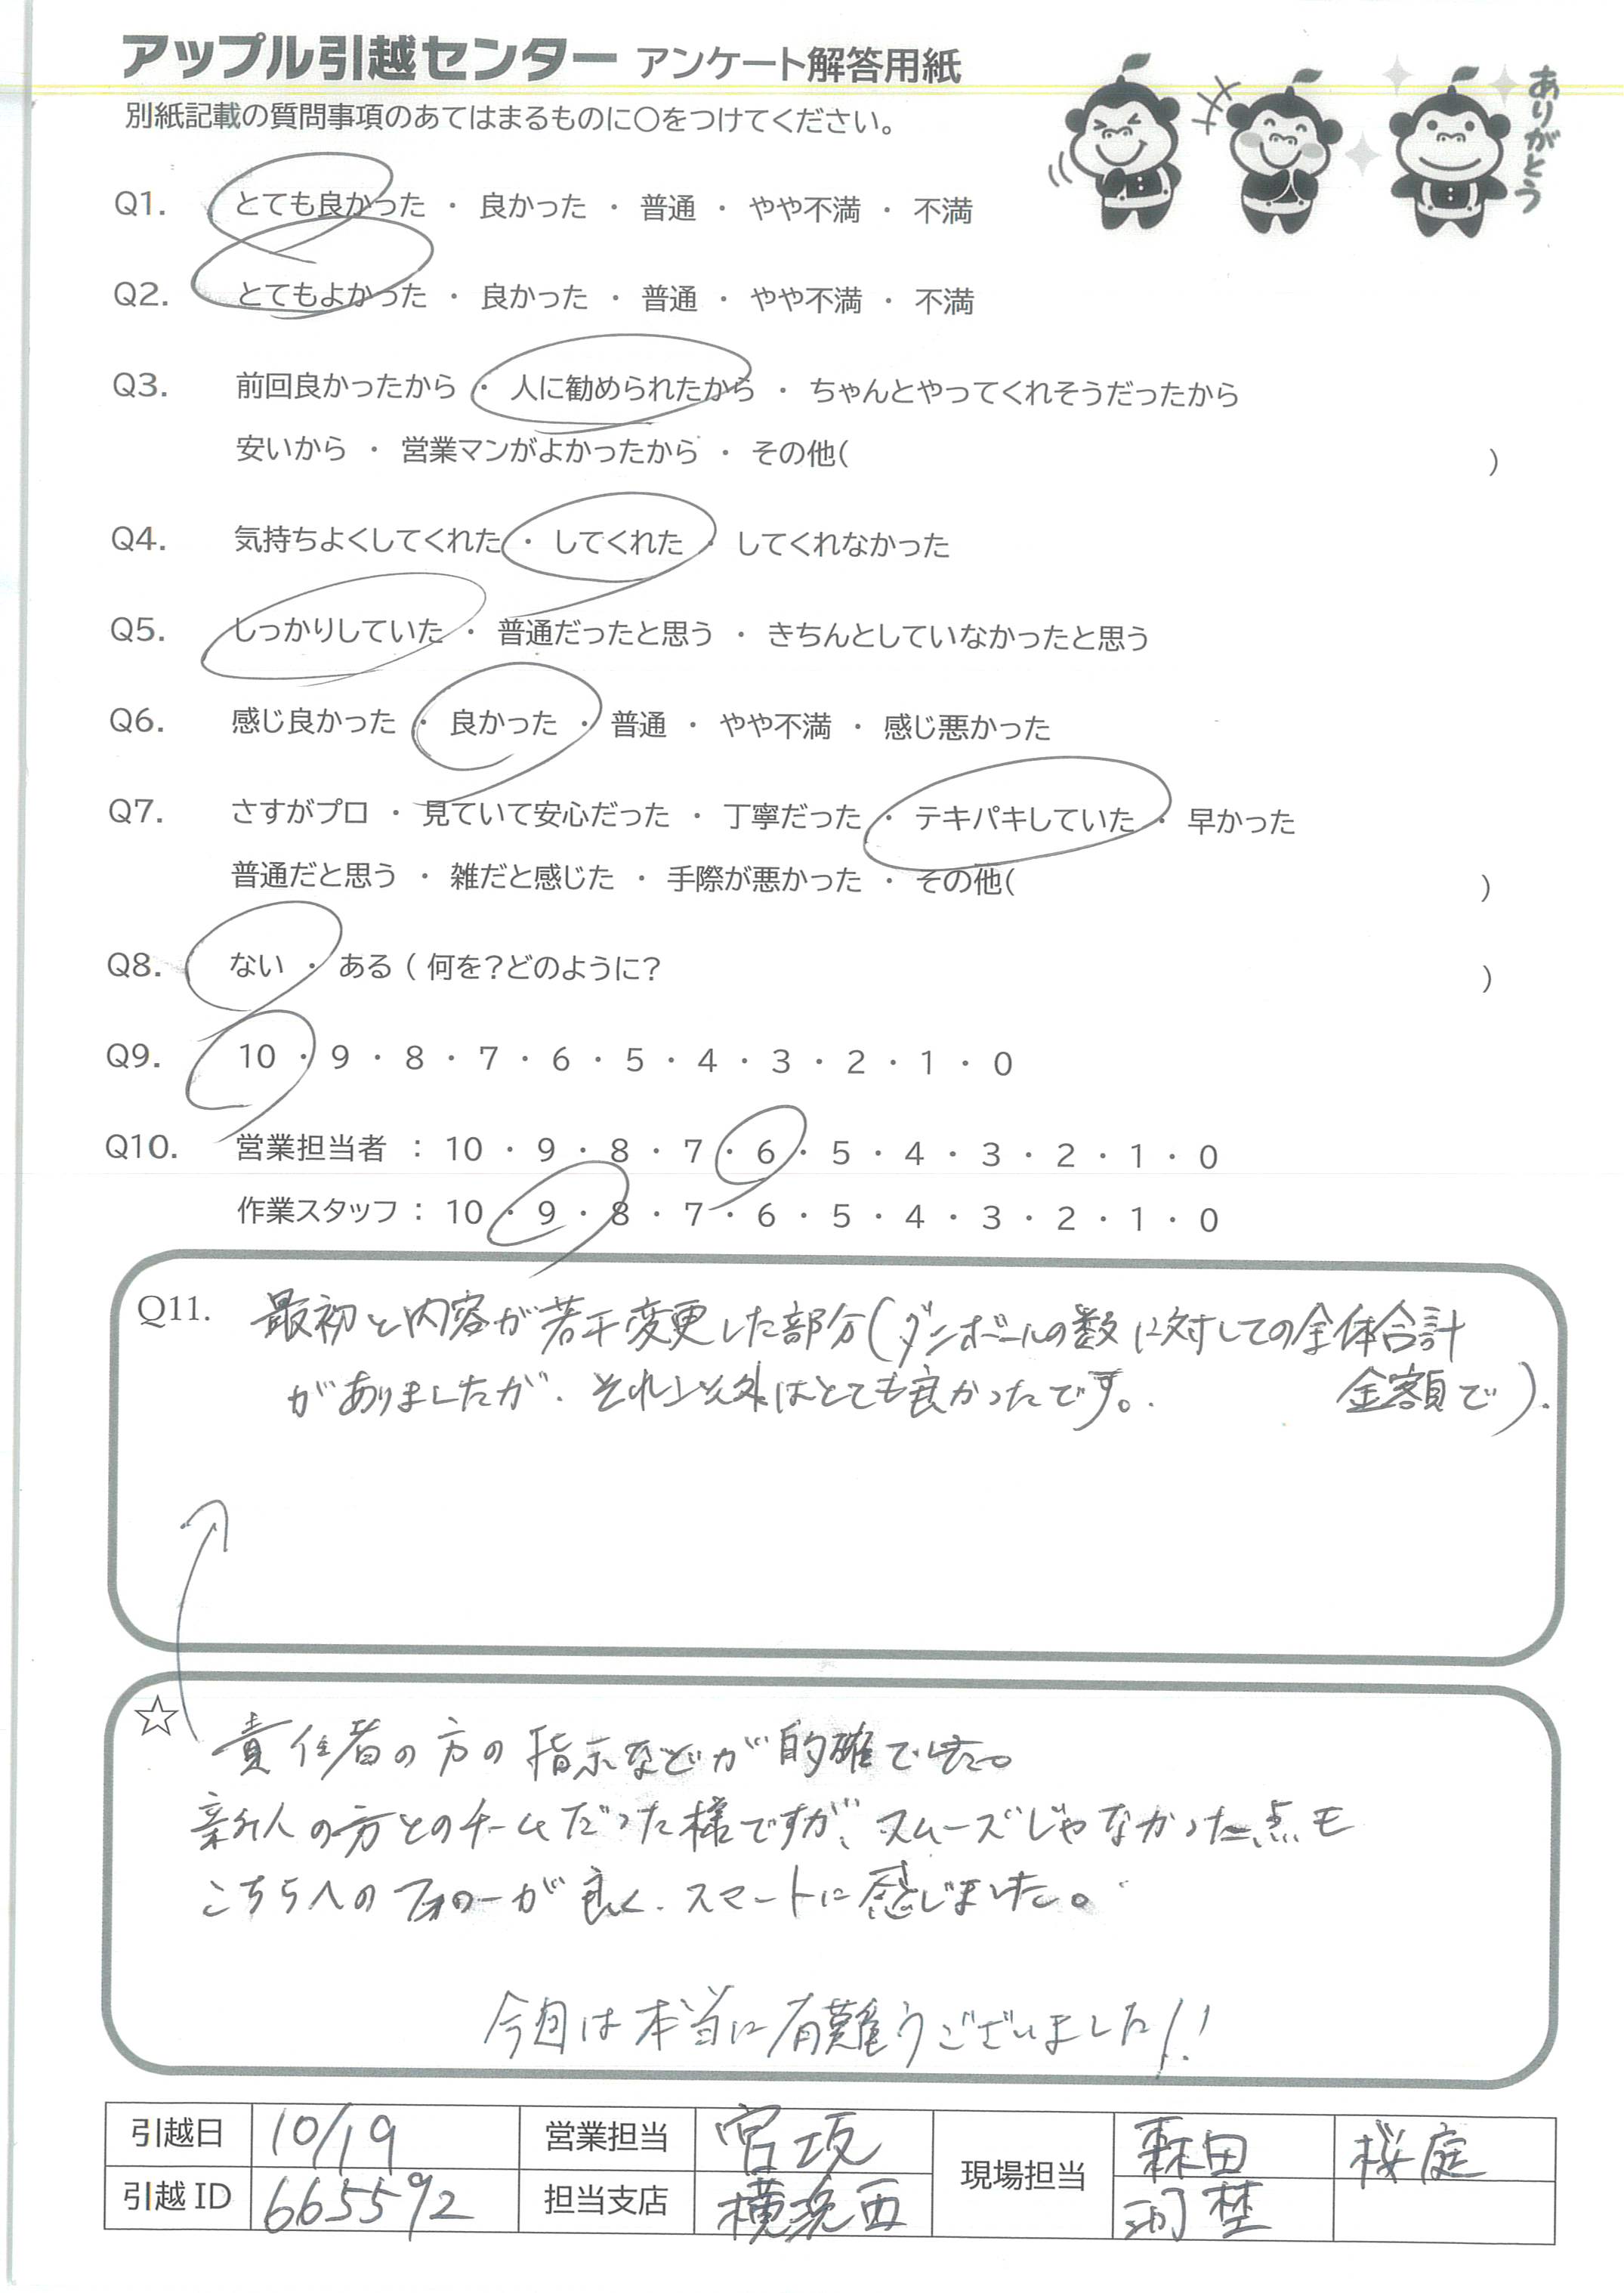 アップル引越センター アンケート解答用紙
ありがとう
別紙記載の質問事項のあてはまるものに○をつけてください。
Q1. とても良かった ・ 良かった ・ 普通 ・ やや不満 ・ 不満
Q2. とてもよかった ・ 良かった ・ 普通 ・ やや不満 ・ 不満
Q3. 前回良かったから ・ 人に勧められたから ・ ちゃんとやってくれそうだったから
安いから ・ 営業マンがよかったから ・ その他( )
Q4. 気持ちよくしてくれた ・ してくれた ・ してくれなかった
Q5. しっかりしていた ・ 普通だったと思う ・ きちんとしていなかったと思う
Q6. 感じ良かった ・ 良かった ・ 普通 ・ やや不満 ・ 感じ悪かった
Q7. さすがプロ ・ 見ていて安心だった ・ 丁寧だった ・ テキパキしていた ・ 早かった
普通だと思う ・ 雑だと感じた ・ 手際が悪かった ・ その他( )
Q8. ない ・ ある ( 何を?どのように? )
Q9. 10 ・ 9 ・ 8 ・ 7 ・ 6 ・ 5 ・ 4 ・ 3 ・ 2 ・ 1 ・ 0
Q10. 営業担当者 : 10 ・ 9 ・ 8 ・ 7 ・ 6 ・ 5 ・ 4 ・ 3 ・ 2 ・ 1 ・ 0
作業スタッフ : 10 ・ 9 ・ 8 ・ 7 ・ 6 ・ 5 ・ 4 ・ 3 ・ 2 ・ 1 ・ 0
Q11. 最初と内容が若干変更した部分(ダンボールの数に対しての全体合計
金額で).
がありましたが、それ以外はとても良かったです。
☆ 責任者の方の指示などが的確でした。
新人の方とのチームだった様ですが、スムーズじゃなかった点も
こちらへのフォローが良く、スマートに感じました。
今回は本当に有難うございました!!
引越日 10/19 営業担当 宮坂 現場担当 森田 桜庭
引越ID 665592 担当支店 横浜西